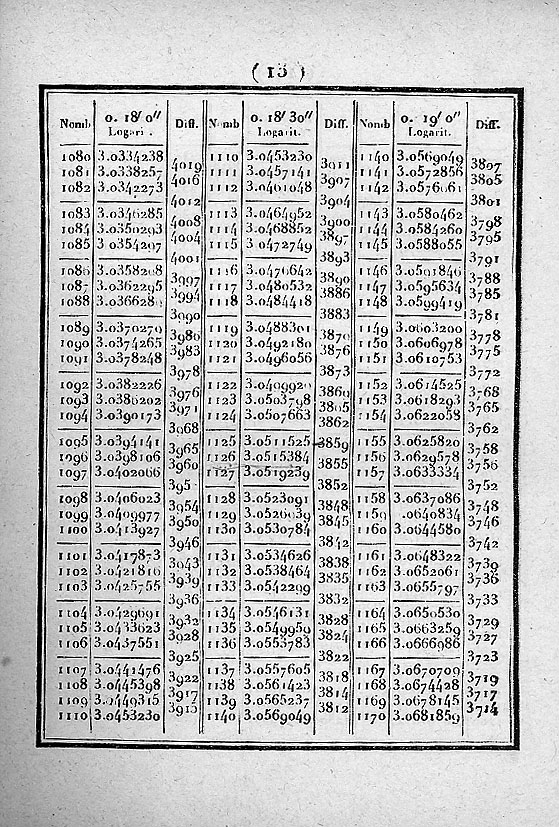 ( 13 )
Nomb 0. 18′ 0″ Logari . Diff. Nomb 0. 18′ 30″ Logarit. Diff. Nomb 0. 19′ 0″ Logarit. Diff.
1080 3.0334238 4019 1110 3.0453230 3911 1140 3.0569049 3807
1081 3.0338257 4016 1111 3.0457141 3907 1141 3.0572856 3805
1082 3.0342273 4012 1112 3.0461048 3904 1142 3.0576661 3801
1083 3.0346285 4008 1113 3.0464952 3900 1143 3.0580462 3798
1084 3.0350293 4004 1114 3.0468852 3897 1144 3.0584260 3795
1085 3.0354297 4001 1115 3.0472749 3893 1145 3.0588055 3791
1086 3.0358298 3997 1116 3.0476642 3890 1146 3.0591846 3788
1087 3.0362295 3994 1117 3.0480532 3886 1147 3.0595634 3785
1088 3.0366289 3990 1118 3.0484418 3883 1148 3.0599419 3781
1089 3.0370279 3986 1119 3.0488301 3879 1149 3.0603200 3778
1090 3.0374265 3983 1120 3.0492180 3876 1150 3.0606978 3775
1091 3.0378248 3978 1121 3.0496056 3873 1151 3.0610753 3772
1092 3.0382226 3976 1122 3.0499929 3869 1152 3.0614525 3768
1093 3.0386202 3971 1123 3.0503798 3865 1153 3.0618293 3765
1094 3.0390173 3968 1124 3.0507663 3862 1154 3.0622058 3762
1095 3.0394141 3965 1125 3.0511525 3859 1155 3.0625820 3758
1096 3.0398106 3960 1126 3.0515384 3855 1156 3.0629578 3756
1097 3.0402066 395 1127 3.0519239 3852 1157 3.0633334 3752
1098 3.0406023 3954 1128 3.0523091 3848 1158 3.0637086 3748
1099 3.0409977 3950 1129 3.0526939 3845 1159 .0640834 3746
1100 3.0413927 3946 1130 3.0530784 3842 1160 3.0644580 3742
1101 3.0417873 3943 1131 3.0534626 3838 1161 3.0648322 3739
1102 3.0421816 3939 1132 3.0538464 3835 1162 3.0652061 3736
1103 3.0425755 3936 1133 3.0542299 3832 1163 3.0655797 3733
1104 3.0429691 3932 1134 3.0546131 3828 1164 3.0659530 3729
1105 3.0433623 3928 1135 3.0549959 3824 1165 3.0663259 3727
1106 3.0437551 3925 1136 3.0553783 3822 1166 3.0666986 3723
1107 3.0441476 3922 1137 3.0557605 3818 1167 3.0670709 3719
1108 3.0445398 3917 1138 3.0561423 3814 1168 3.0674428 3717
1109 3.0449315 3915 1139 3.0565237 3812 1169 3.0678145 3714
1110 3.0453230 1140 3.0569049 1170 3.0681859